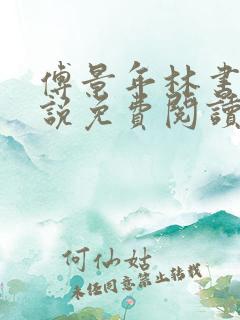 傅景年林書
說免費閱讀
何仙姑
未经同意禁止转载